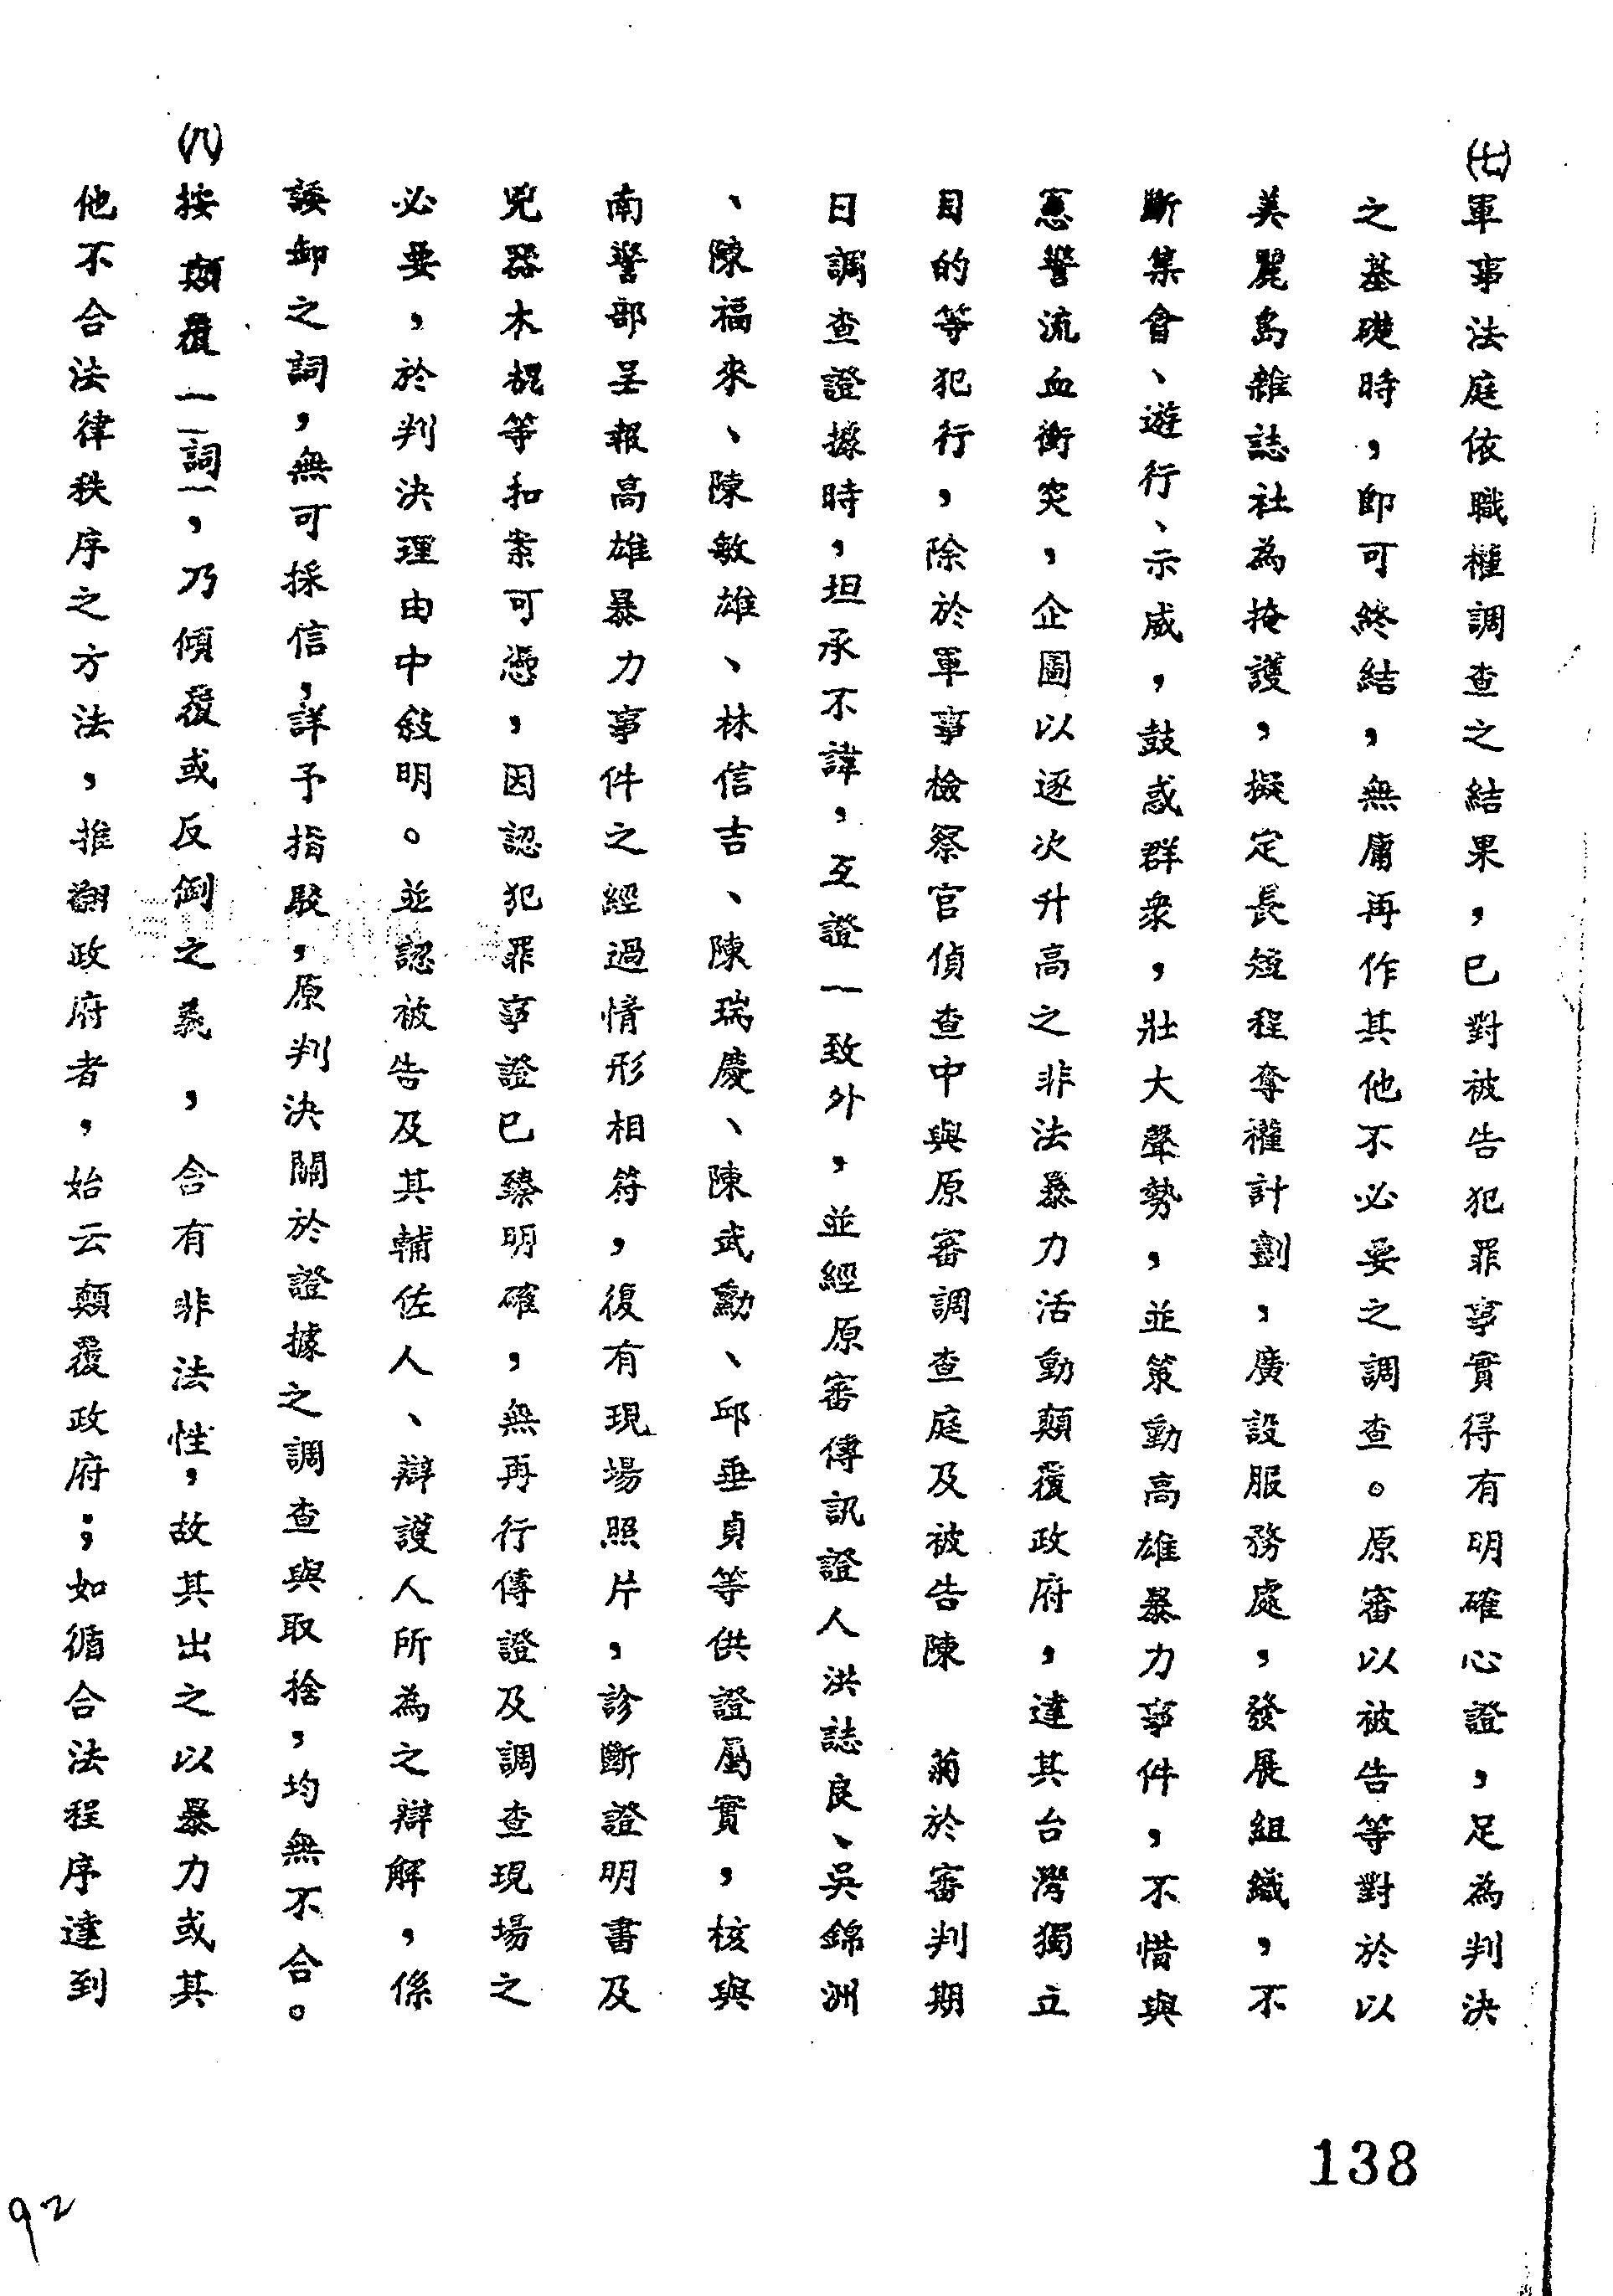 (七)軍事法庭依職權調查之結果，已對被告犯罪事實得有明確心證，足為判決
之基礎時，即可終結，無庸再作其他不必要之調查。原審以被告等對於以
美麗島雜誌社為掩護，擬定長短程奪權計劃，廣設服務處，發展組織，不
斷集會、遊行、示威，鼓惑群衆，壯大聲勢，並策動高雄暴力事件，不惜與
憲警流血衝突，企圖以逐次升高之非法暴力活動顛覆政府，達其台灣獨立
目的等犯行，除於軍事檢察官偵查中與原審調查庭及被告陳　菊於審判期
日調查證據時，坦承不諱，互證一致外，並經原審傳訊證人洪誌良、吳錦洲
、陳福來、陳敏雄、林信吉、陳瑞慶、陳武勳、邱垂貞等供證屬實，核與
南警部呈報高雄暴力事件之經過情形相符，復有現場照片，診斷證明書及
兇器木棍等扣案可憑，因認犯罪事證已臻明確，無再行傳證及調查現場之
必要，於判決理由中敍明。並認被告及其輔佐人、辯護人所為之辯解，係
諉卸之詞，無可採信，詳予指駁，原判決關於證據之調查與取捨，均無不合。
(八)按顛覆一詞，乃傾覆或反倒之義，含有非法性，故其出之以暴力或其
他不合法律秩序之方法，推翻政府者，始云顛覆政府；如循合法程序達到
138
92